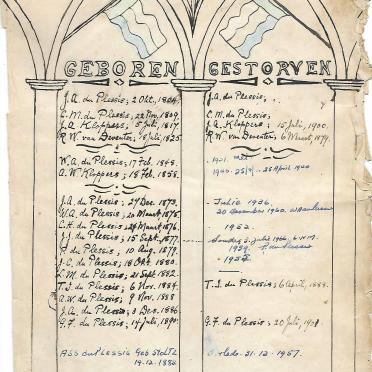 GEBOREN
J.A. du Plessis; 2 Okt. 1804.
C.M. du Plessis, 22 Nov. 1809.
J.A. Kloppers; 5 Juli, 1817.
R.W. van Deventer, 8 Juli, 1825.
W.A. du Plessis, 17 Feb. 1848.
A.W. Kloppers, 18 Feb. 1858.
J.A. du Plessis; 27 Dec. 1873.
W.A. du Plessis, 20 Maart 1875.
C.H. du Plessis, 29 Maart 1876.
J.J. du Plessis, 15 Sept. 1877.
P. du Plessis, 10 Aug. 1879.
J.C. du Plessis; 18 Okt. 1880.
L.M. du Plessis, 21 Sept. 1882.
T.I. du Plessis; 6 Nov. 1884.
A.W. du Plessis, 9 Nov. 1888
J.A. du Plessis; 3 Dec. 1886.
G.F. du Plessis; 14 Julie, 1890.
ASS du Plessis Geb Stoltz
19.12.1886
GESTORVEN
J.A. du Plessis;
C.M. du Plessis;
J.A. Kloppers; 15 Julij, 1900.
R.W. van Deventer; 6 Maart, 1879.
1921. Mei
1940. 25 April 1940
Julie 1936.
20 December 1960.
1952.
Sondag 3 Julie 1966
1959.
1952
T.I. du Plessis; 6 April, 1888.
G.F. du Plessis; 20 Julij,
Overlede. 31-12-1957.